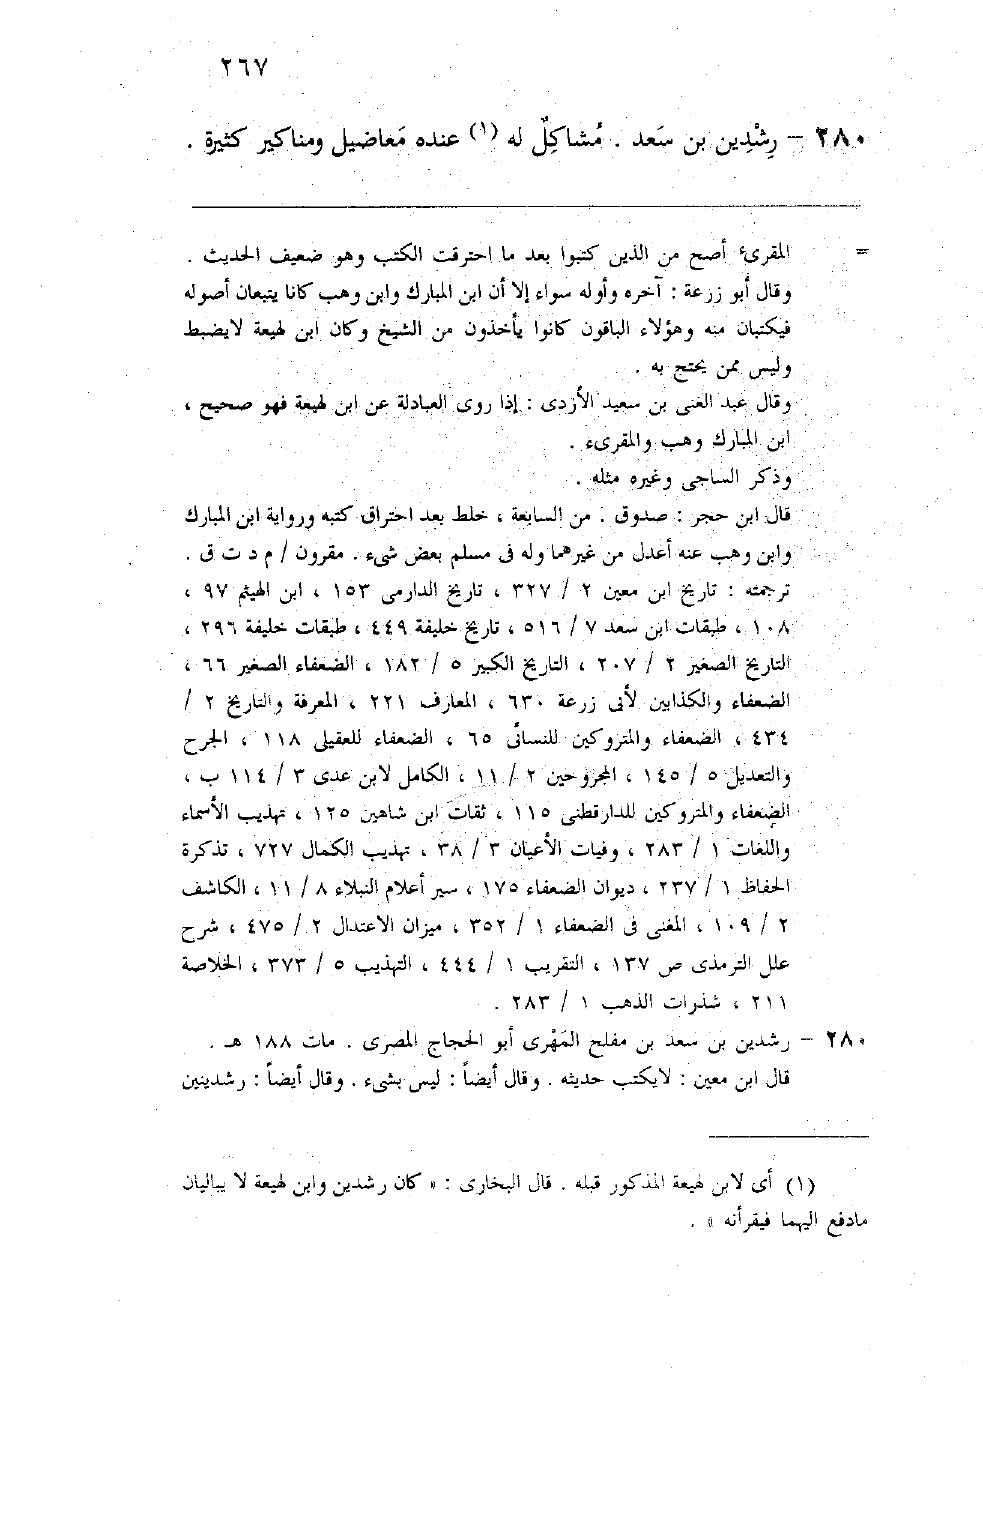 ٢٦٧
٢٨٠ – رِشْدِين بن سَعد . مُشاكِلٌ له (١) عنده مَعاضيل ومناكير كثيرة .
= المقرئ أصح من الذين كتبوا بعد ما احترقت الكتب وهو ضعيف الحديث .
وقال أبو زرعة : آخره وأوله سواء إلا أن ابن المبارك وابن وهب كانا يتبعان أصوله
فيكتبان منه وهؤلاء الباقون كانوا يأخذون من الشيخ وكان ابن لهيعة لايضبط
وليس ممن يحتج به .
وقال عبد الغنى بن سعيد الأزدى : إذا روى العبادلة عن ابن لهيعة فهو صحيح ،
ابن المبارك وهب والمقرىء .
وذكر الساجى وغيره مثله .
قال ابن حجر : صدوق . من السابعة ، خلط بعد احتراق كتبه ورواية ابن المبارك
وابن وهب عنه أعدل من غيرهما وله فى مسلم بعض شىء . مقرون / م د ت ق .
ترجمته : تاريخ ابن معين ٢ / ٣٢٧ ، تاريخ الدارمى ١٥٣ ، ابن الهيثم ٩٧ ،
١٠٨ ، طبقات ابن سعد ٧ / ٥١٦ ، تاريخ خليفة ٤٤٩ ، طبقات خليفة ٢٩٦ ،
التاريخ الصغير ٢ / ٢٠٧ ، التاريخ الكبير ٥ / ١٨٢ ، الضعفاء الصغير ٦٦ ،
الضعفاء والكذابين لأبى زرعة ٦٣٠ ، المعارف ٢٢١ ، المعرفة والتاريخ ٢ /
٤٣٤ ، الضعفاء والمتروكين للنسائى ٦٥ ، الضعفاء للعقيلى ١١٨ ، الجرح
والتعديل ٥ / ١٤٥ ، المجروحين ٢ / ١١ ، الكامل لابن عدى ٣ / ١١٤ ب ،
الضعفاء والمتروكين للدارقطنى ١١٥ ، ثقات ابن شاهين ١٢٥ ، تهذيب الأسماء
واللغات ١ / ٢٨٣ ، وفيات الأعيان ٣ / ٣٨ ، تهذيب الكمال ٧٢٧ ، تذكرة
الحفاظ ١ / ٢٣٧ ، ديوان الضعفاء ١٧٥ ، سير أعلام النبلاء ٨ / ١١ ، الكاشف
٢ / ١٠٩ ، المغنى فى الضعفاء ١ / ٣٥٢ ، ميزان الاعتدال ٢ / ٤٧٥ ، شرح
علل الترمذى ص ١٣٧ ، التقريب ١ / ٤٤٤ ، التهذيب ٥ / ٣٧٣ ، الخلاصة
٢١١ ، شذرات الذهب ١ / ٢٨٣ .
٢٨٠ – رشدين بن سعد بن مفلح المَهْرى أبو الحجاج المصرى . مات ١٨٨ هـ .
قال ابن معين : لايكتب حديثه . وقال أيضاً : ليس بشىء . وقال أيضاً : رشدينين
(١) أى لابن لهيعة المذكور قبله . قال البخارى : « كان رشدين وابن لهيعة لا يباليان
مادفع اليهما فيقرأنه » .